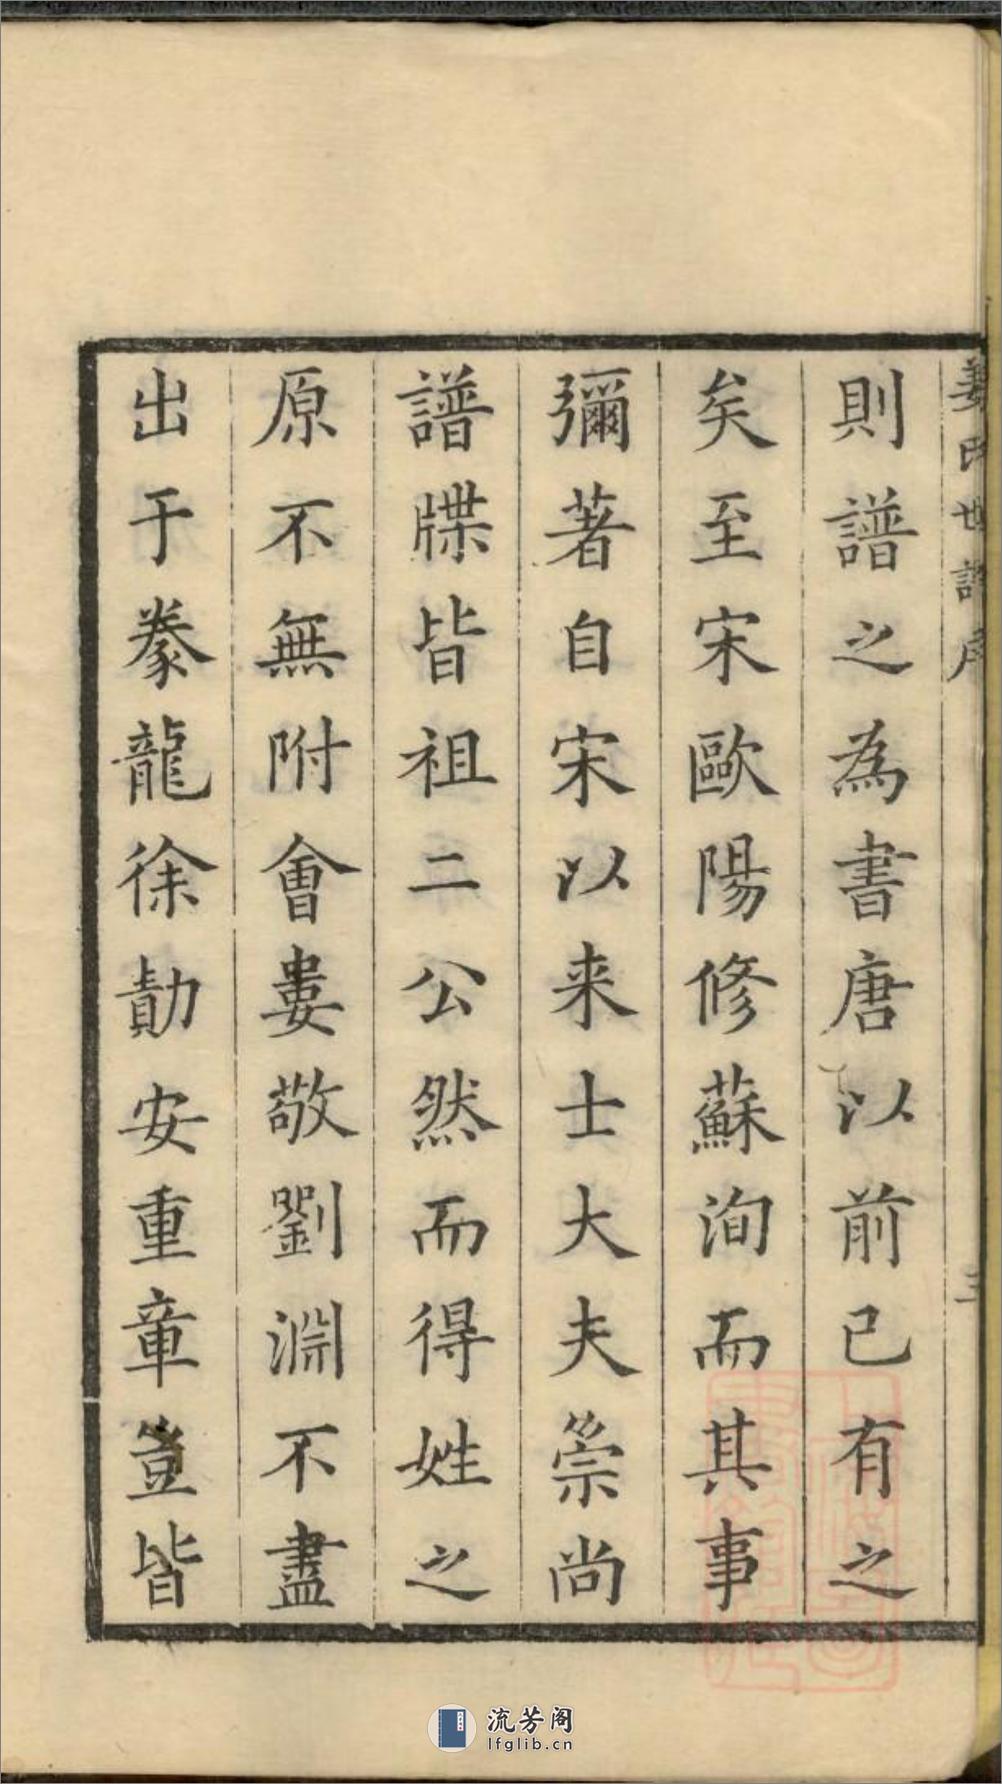 姜氏世譜序
三
則譜之為書唐以前已有之
矣至宋歐陽修蘇洵而其事
彌著自宋以来士大夫崇尚
譜牒皆祖二公然而得姓之
原不無附會婁敬劉淵不盡
出于豢龍徐勣安重章豈皆
流芳阁
lfglib.cn